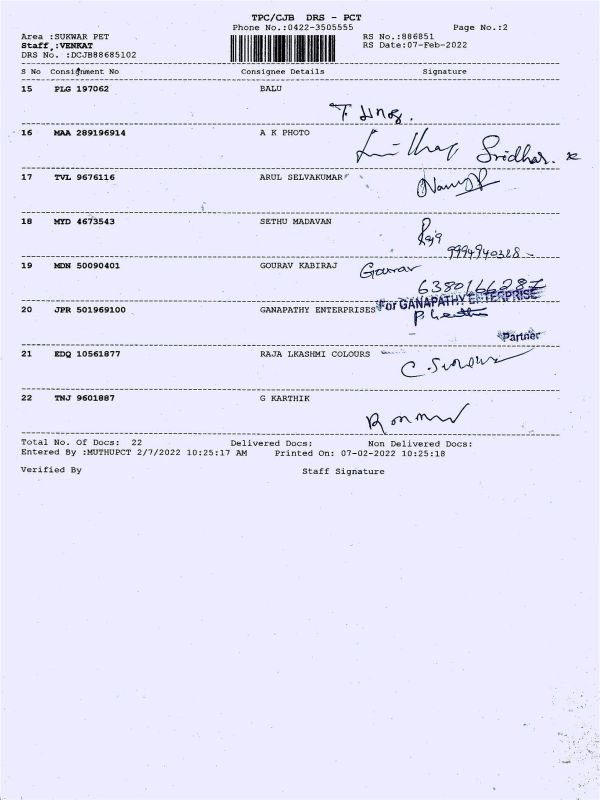 TPC/CJB DRS - PCT
Phone No.:0422-3505555 Page No.:2
Area :SUKWAR PET RS No.:886851
Staff :VENKAT RS Date:07-Feb-2022
DRS No. :DCJB88685102
S No Consignment No Consignee Details Signature
15 PLG 197062 BALU
16 MAA 289196914 A K PHOTO
Sridhar.
17 TVL 9676116 ARUL SELVAKUMAR
18 MYD 4673543 SETHU MADAVAN
Raja
9994940388
19 MDN 50090401 GOURAV KABIRAJ Gourav
6380166287
20 JPR 501969100 GANAPATHY ENTERPRISES For GANAPATHY ENTERPRISE
Partner
21 EDQ 10561877 RAJA LKASHMI COLOURS
22 TNJ 9601887 G KARTHIK
Total No. Of Docs: 22 Delivered Docs: Non Delivered Docs:
Entered By :MUTHUPCT 2/7/2022 10:25:17 AM Printed On: 07-02-2022 10:25:18
Verified By Staff Signature